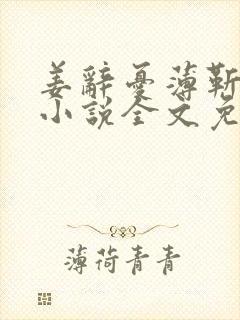 姜辭憂薄靳
小說全文免
薄荷青青